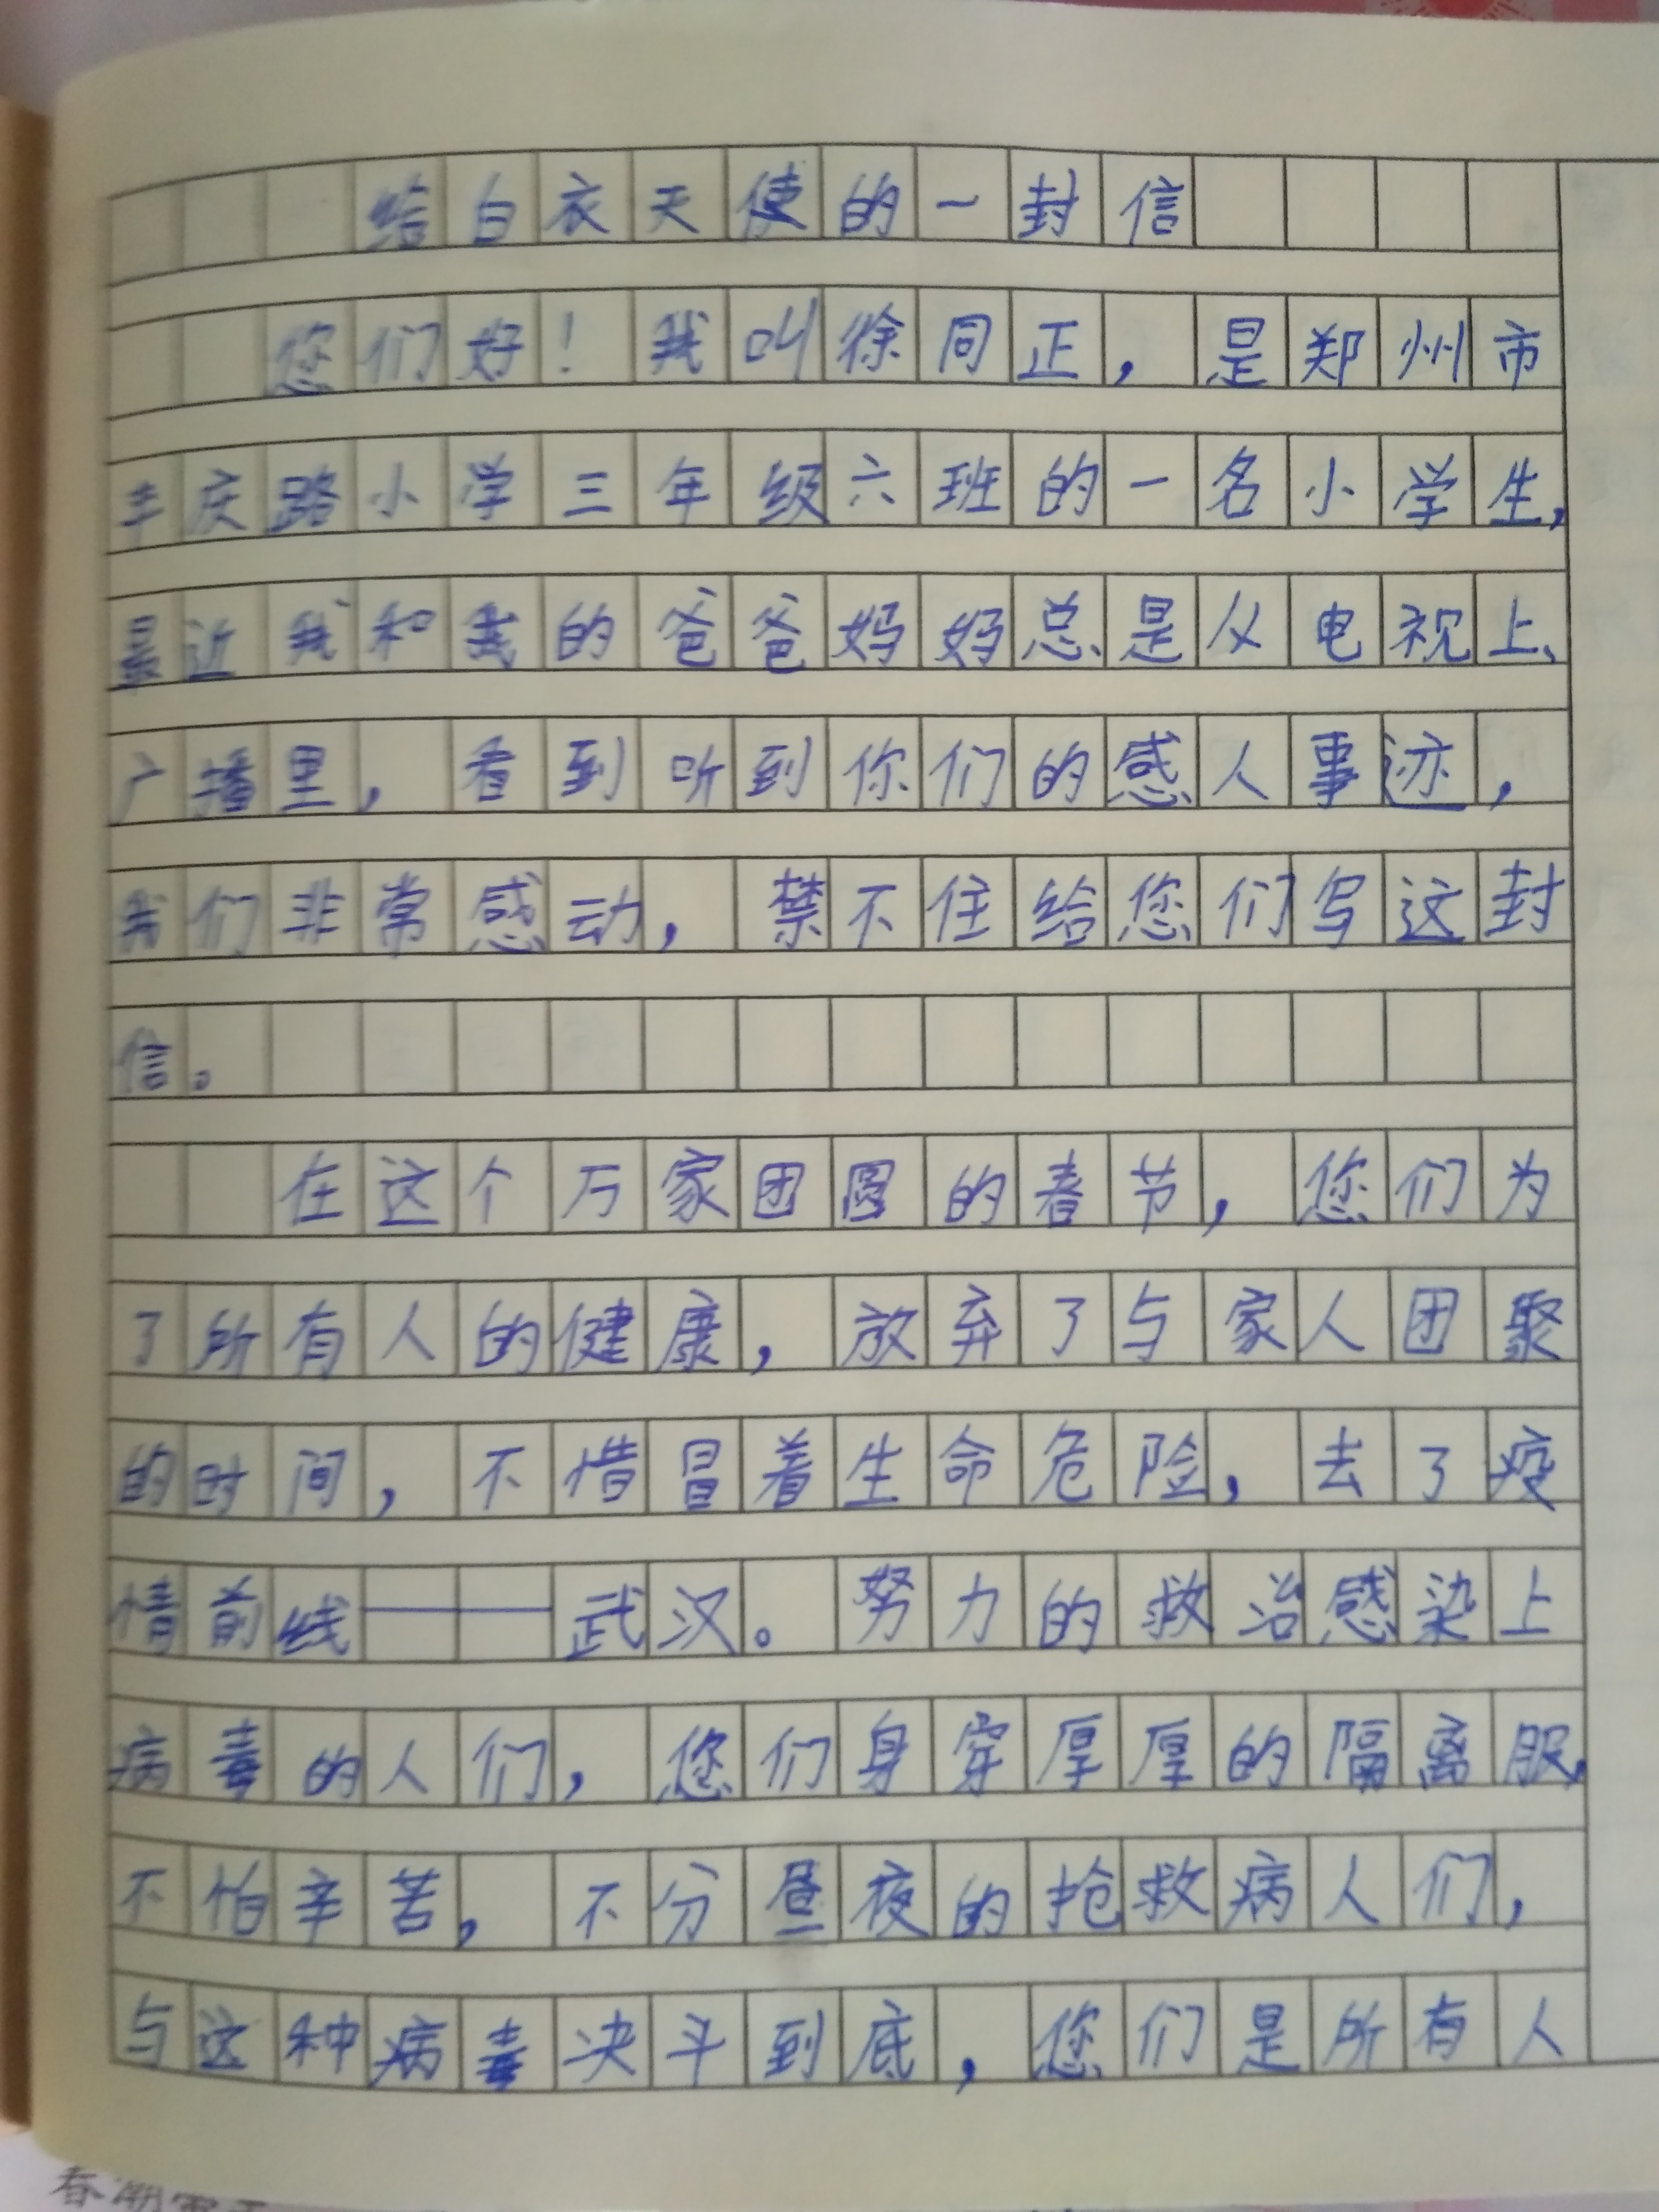 给白衣天使的一封信
您们好！我叫徐同正，是郑州市
丰庆路小学三年级六班的一名小学生，
最近我和我的爸爸妈妈总是从电视上、
广播里，看到听到你们的感人事迹，
我们非常感动，禁不住给您们写这封
信。
在这个万家团圆的春节，您们为
了所有人的健康，放弃了与家人团聚
的时间，不惜冒着生命危险，去了疫
情前线——武汉。努力的救治感染上
病毒的人们，您们身穿厚厚的隔离服，
不怕辛苦，不分昼夜的抢救病人们，
与这种病毒决斗到底，您们是所有人